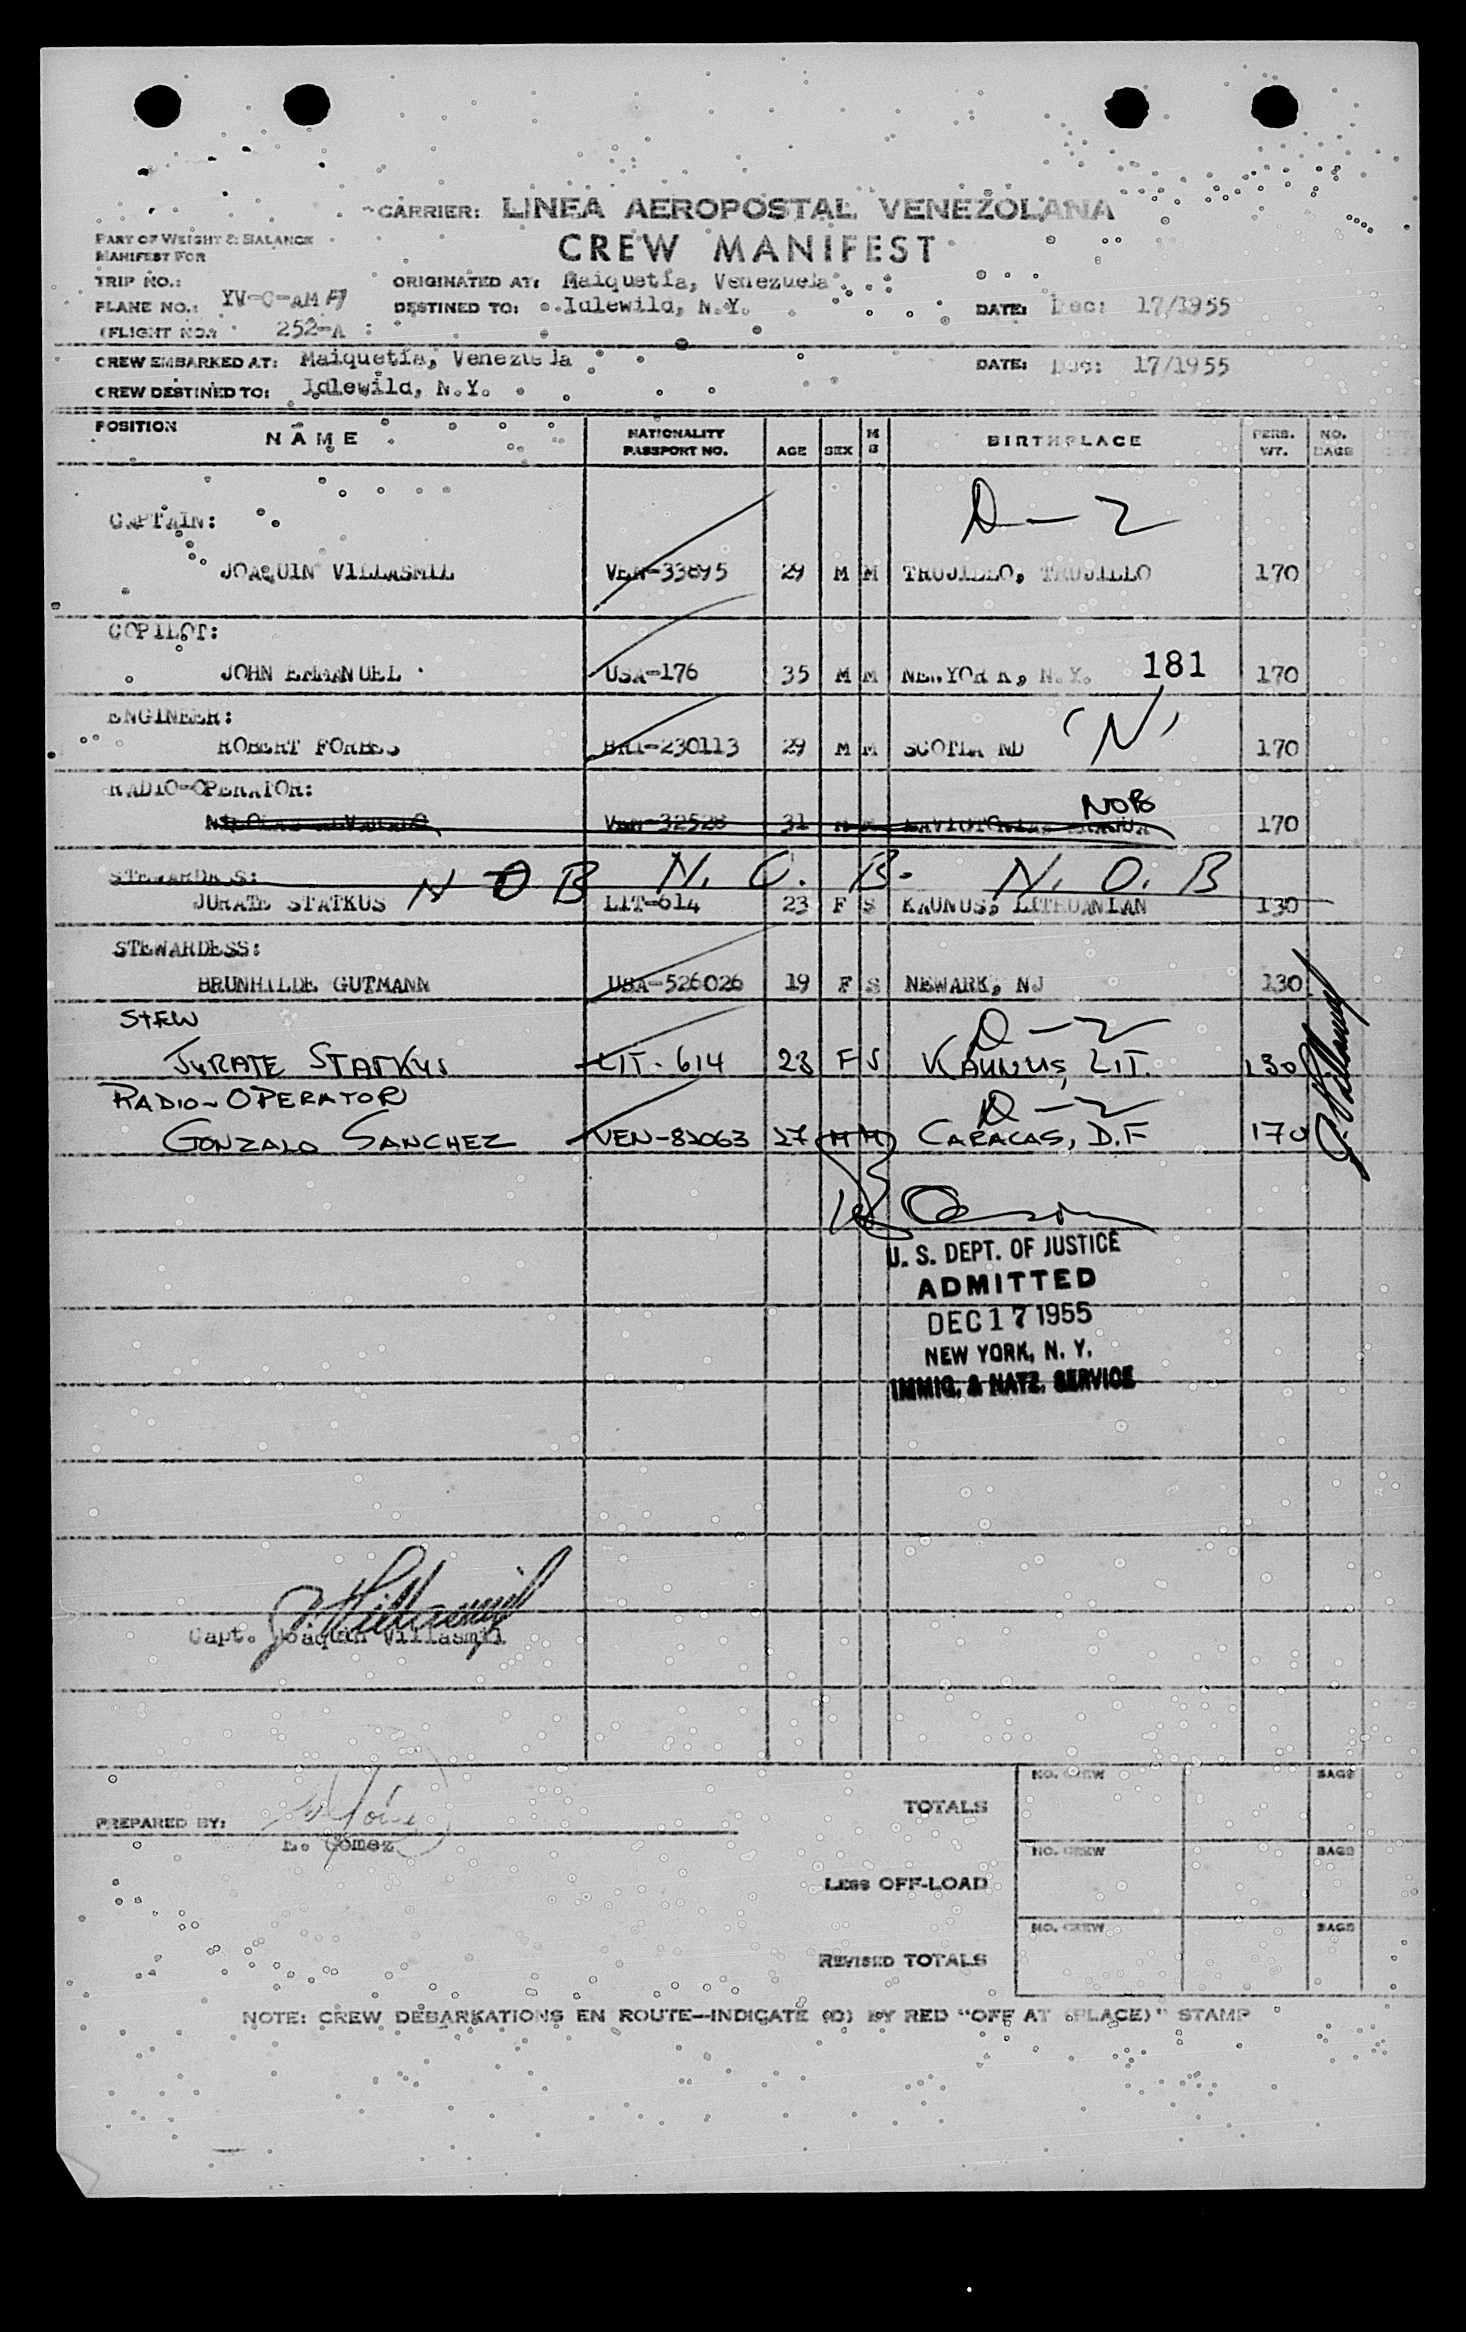 CARRIER: LINEA AEROPOSTAL VENEZOLANA
PART OF WEIGHT & BALANCE
MANIFEST FOR
CREW MANIFEST
TRIP NO.: ORIGINATED AT: Maiquetía, Venezuela
PLANE NO.: YV-C-AMA DESTINED TO: Idlewild, N.Y. DATE: Dec: 17/1955
(FLIGHT NO.: 252-A
CREW EMBARKED AT: Maiquetía, Venezuela DATE: Dec: 17/1955
CREW DESTINED TO: Idlewild, N.Y.
POSITION NAME NATIONALITY PASSPORT NO. AGE SEX M S BIRTHPLACE PERS. WT. NO. BAGS
D-2
CAPTAIN:
JOAQUIN VILLASMIL VEN-33895 29 M M TRUJILLO, TRUJILLO 170
COPILOT:
JOHN EMMANUEL USA-176 35 M M NEW YORK, N.Y. 181 170
ENGINEER:
ROBERT FORBES BRI-230113 29 M M SCOTLAND "N" 170
RADIO-OPERATOR: NOB
VEN-32528 31 M M 170
STEWARDESS: NOB N.O.B. N.O.B
JURATE STATKUS LIT-614 23 F S KAUNUS, LITHUANIAN 130
STEWARDESS:
BRUNHILDE GUTMANN USA-526026 19 F S NEWARK, NJ 130
STEW D-2
JURATE STATKUS LIT-614 23 F S KAUNUS, LIT. 130 J. Villasmil
RADIO-OPERATOR D-2
GONZALO SANCHEZ VEN-82063 27 M M CARACAS, D.F 170
U. S. DEPT. OF JUSTICE
ADMITTED
DEC 17 1955
NEW YORK, N. Y.
IMMIG. & NATZ. SERVICE
J. Villasmil
Capt. Joaquin Villasmil
NO. CREW BAGS
TOTALS
PREPARED BY:
L. Gomez
NO. CREW BAGS
LESS OFF-LOAD
NO. CREW BAGS
REVISED TOTALS
NOTE: CREW DEBARKATIONS EN ROUTE—INDICATE (D) BY RED "OFF AT (PLACE)" STAMP